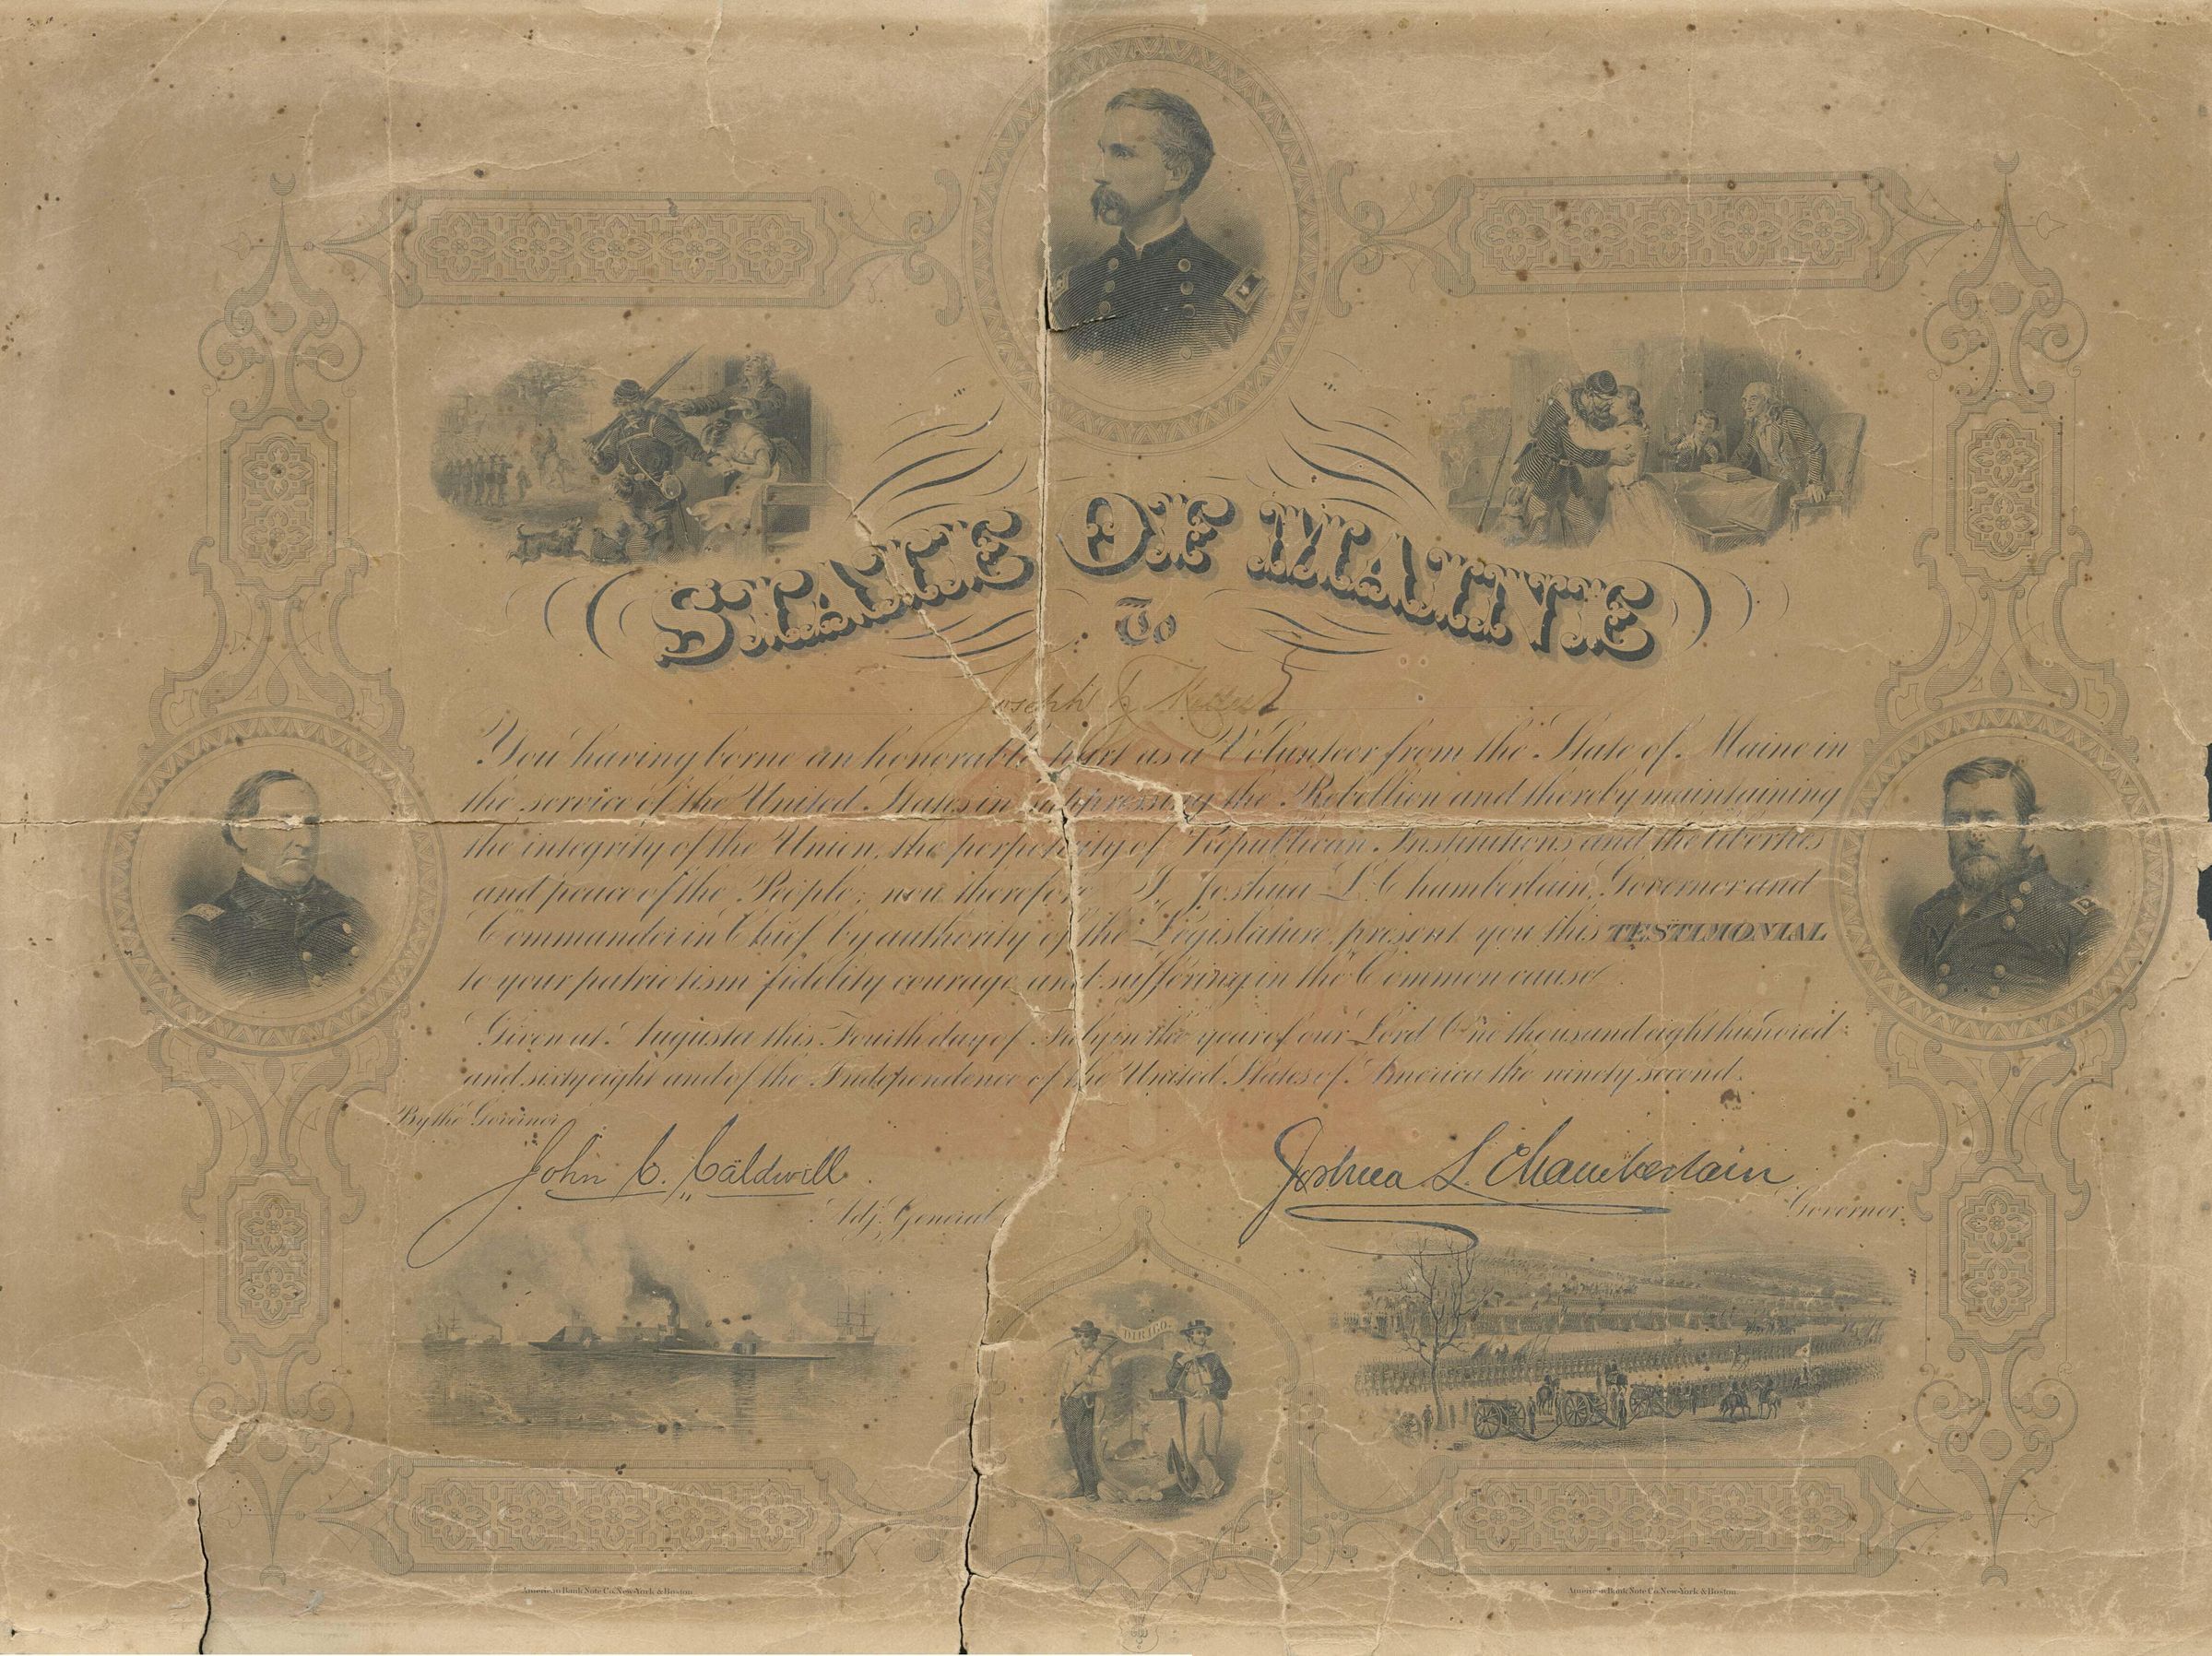 STATE OF MAINE
To
Joseph
You having borne an honorable part as a Volunteer from the State of Maine in
the service of the United States in suppressing the Rebellion and thereby maintaining
the integrity of the Union, the perpetuity of Republican Institutions and the liberties
and peace of the People; now therefore I, Joshua L Chamberlain, Governor and
Commander in Chief, by authority of the Legislature present you this TESTIMONIAL
to your patriotism fidelity courage and suffering in the Common cause.
Given at Augusta this Fourth day of July in the year of our Lord One thousand eight hundred
and sixty eight and of the Independence of the United States of America the ninety second.
By the Governor
John C. Caldwell
Adj. General
Joshua L. Chamberlain
Governor.
DIRIGO.
American Bank Note Co. New-York & Boston
American Bank Note Co. New-York & Boston